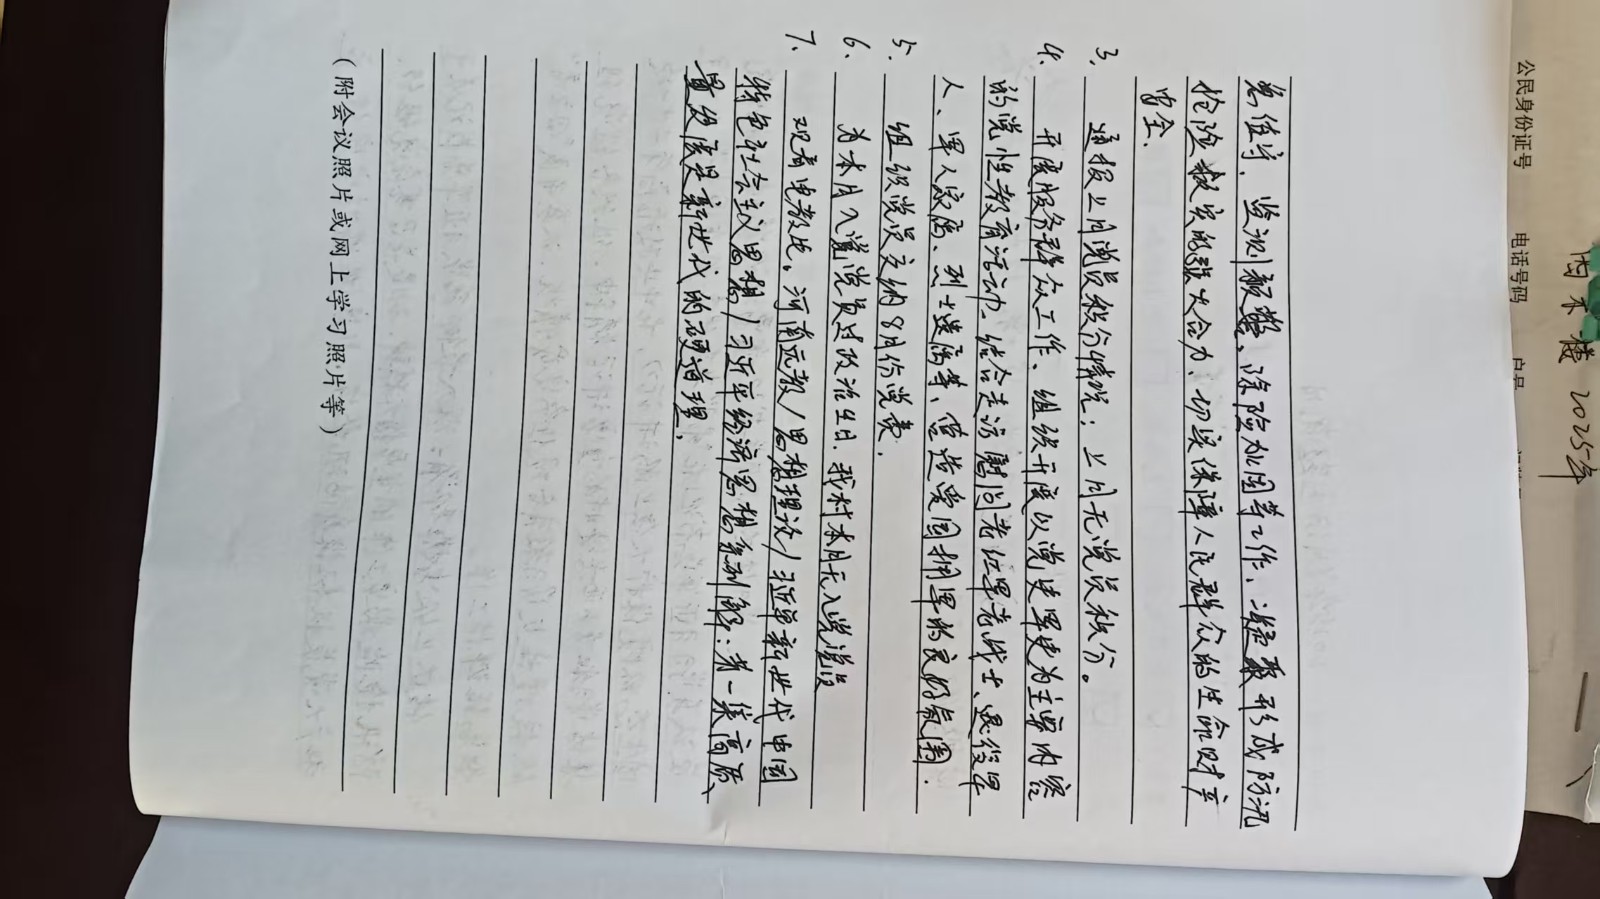 急值守、监测预警、除险加固等工作、凝聚形成防汛
抢险救灾的强大合力、切实保障人民群众的生命财产
安全.
3、通报上月党员积分情况：上月无党员积分。
4、开展服务群众工作、组织开展以党史军史为主要内容
的党性教育活动、结合走访慰问老红军老战士、退役军
人、军人家属、烈士遗属等、营造爱国拥军的良好氛围.
5、组织党员交纳8月份党费.
6、为本月入党党员过政治生日.我村本月无入党党员
7、观看电教片、河南远教/思想理论/习近平新世代中国
特色社会主义思想/习近平经济思想系列解：第一集高质
量发展是新世代的硬道理.
(附会议照片或网上学习照片等)
公民身份证号
电话号码
2025年